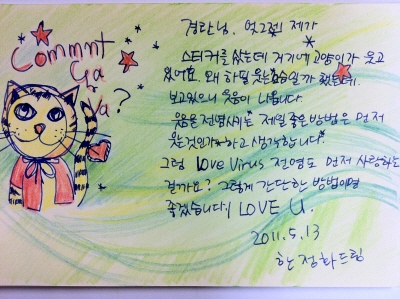 Commnt
Ça
Va?
경란님, 엊그제 제가
스티커를 샀는데 거기에 고양이가 웃고
있어요. 왜 하필 웃는 모습일까 했는데,
보고있으니 웃음이 나옵니다.
웃음을 전염시키는 제일 좋은 방법은 먼저
웃는 것인가 하고 생각합니다.
그럼 Love Virus 전염도 먼저 사랑하는
걸까요? 그렇게 간단한 방법이면
좋겠습니다. I LOVE U.
2011.5.13
한정화드림